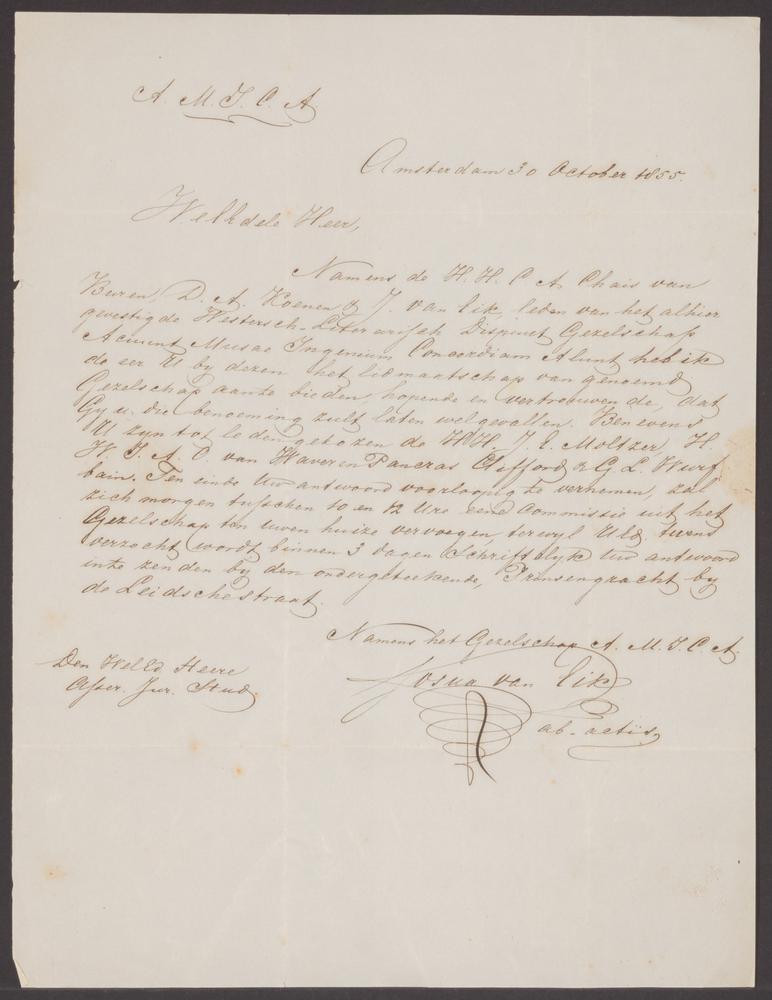 A. M. I. C. A
Amsterdam 30 October 1855.
WelEdele Heer,
Namens de H.H. C. A. Chais van
Buren, D. A. Koenen & J. van Eik, leden van het alhier
gevestigde Westersch-Letterkundig Dispuut Gezelschap
Acuunt Musae Ingenium Concordiam Alunt heb ik
de eer U by dezen het lidmaatschap van genoemd
Gezelschap aante bieden, hopende en vertrouwende, dat
Gy u die benoeming zult laten welgevallen. Benevens
U zyn tot leden gekozen de HH. J. E. Moltzer, H.
W. J. A. C. van Waveren Pancras Clifford & G L. Wurf
bain. Ten einde Uw antwoord voorloopig te vernemen, zal
zich morgen tusschen 10 en 12 Ure eene Commissie uit het
Gezelschap ten uwen huize vervoegen, terwyl UEd. tevens
verzocht wordt binnen 3 dagen Schriftelyk Uw antwoord
inte zenden by den ondergeteekende, Prinsengracht by
de Leidschestraat.
Namens het Gezelschap A. M. I. C. A.
Josua van Eik
ab-actis
Den WelEd. Heere
Asser. Jur. Stud.